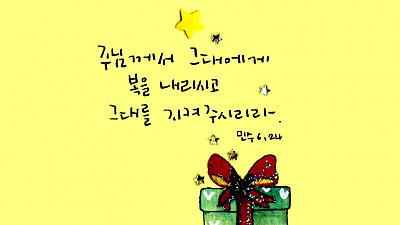 주님께서 그대에게
복을 내리시고
그대를 지켜주시리라.
민수 6,24